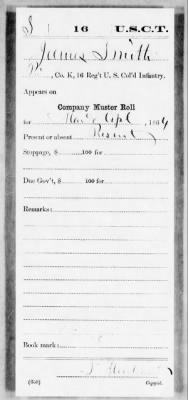 S 16 U.S.C.T.
James Smith
, Co. K, 16 Reg't U. S. Col'd Infantry.
Appears on
Company Muster Roll
for Mar & Apl, 1864
Present or absent Present
Stoppage, $ 100 for
Due Gov't, $ 100 for
Remarks:
Book mark:
(358) Copyist.